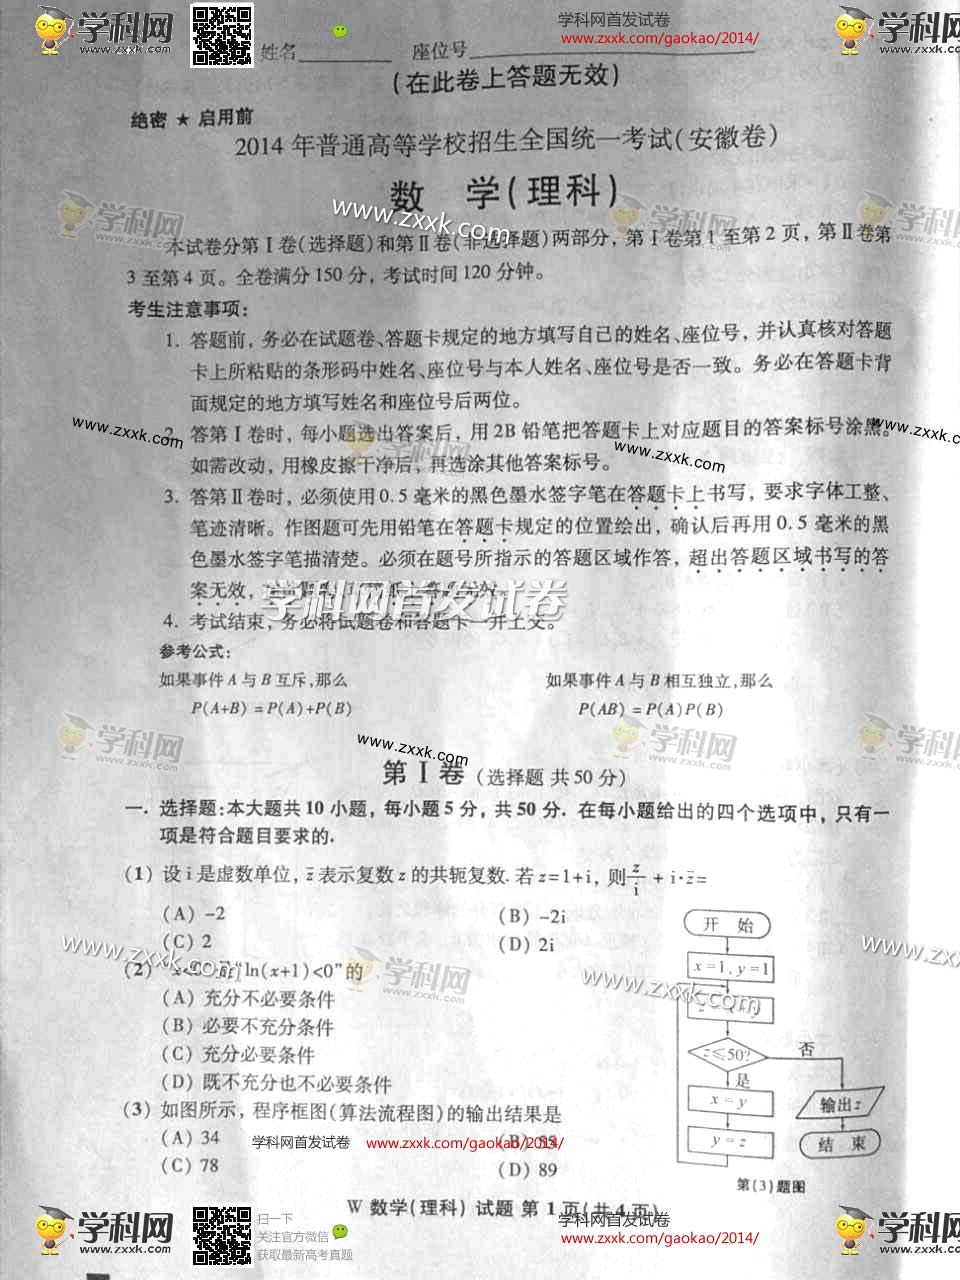 学科网
www.zxxk.com
学科网首发试卷
www.zxxk.com/gaokao/2014/
姓名 座位号
(在此卷上答题无效)
绝密 ★ 启用前
2014 年普通高等学校招生全国统一考试(安徽卷)
数 学(理科)
www.zxxk.com
本试卷分第Ⅰ卷(选择题)和第Ⅱ卷(非选择题)两部分，第Ⅰ卷第 1 至第 2 页，第Ⅱ卷第
3 至第 4 页。全卷满分 150 分，考试时间 120 分钟。
考生注意事项：
1. 答题前，务必在试题卷、答题卡规定的地方填写自己的姓名、座位号，并认真核对答题
卡上所粘贴的条形码中姓名、座位号与本人姓名、座位号是否一致。务必在答题卡背
面规定的地方填写姓名和座位号后两位。
2. 答第Ⅰ卷时，每小题选出答案后，用 2B 铅笔把答题卡上对应题目的答案标号涂黑。
如需改动，用橡皮擦干净后，再选涂其他答案标号。
3. 答第Ⅱ卷时，必须使用 0.5 毫米的黑色墨水签字笔在答题卡上书写，要求字体工整、
笔迹清晰。作图题可先用铅笔在答题卡规定的位置绘出，确认后再用 0.5 毫米的黑
色墨水签字笔描清楚。必须在题号所指示的答题区域作答，超出答题区域书写的答
案无效，
学科网首发试卷
4. 考试结束，务必将试题卷和答题卡一并上交。
参考公式：
如果事件 A 与 B 互斥，那么 如果事件 A 与 B 相互独立，那么
P(A+B) =P(A)+P(B) P(AB) =P(A)P(B)
第Ⅰ卷 (选择题 共 50 分)
一. 选择题：本大题共 10 小题，每小题 5 分，共 50 分. 在每小题给出的四个选项中，只有一
项是符合题目要求的.
(1) 设 i 是虚数单位，z̄ 表示复数 z 的共轭复数. 若 z=1+i，则 z/i + i·z̄=
(A) -2 (B) -2i
(C) 2 (D) 2i
(2) “ln(x+1)<0”的
(A) 充分不必要条件
(B) 必要不充分条件
(C) 充分必要条件
(D) 既不充分也不必要条件
(3) 如图所示，程序框图(算法流程图)的输出结果是
(A) 34 (B) 55
(C) 78 (D) 89
学科网首发试卷 www.zxxk.com/gaokao/2014/
开 始
x=1, y=1
z≤50?
否
是
x=y
y=z
输出z
结 束
第(3)题图
W 数学(理科) 试题 第 1 页(共 4 页)
扫一下
关注官方微信
获取最新高考真题
学科网首发试卷
www.zxxk.com/gaokao/2014/
学科网
www.zxxk.com